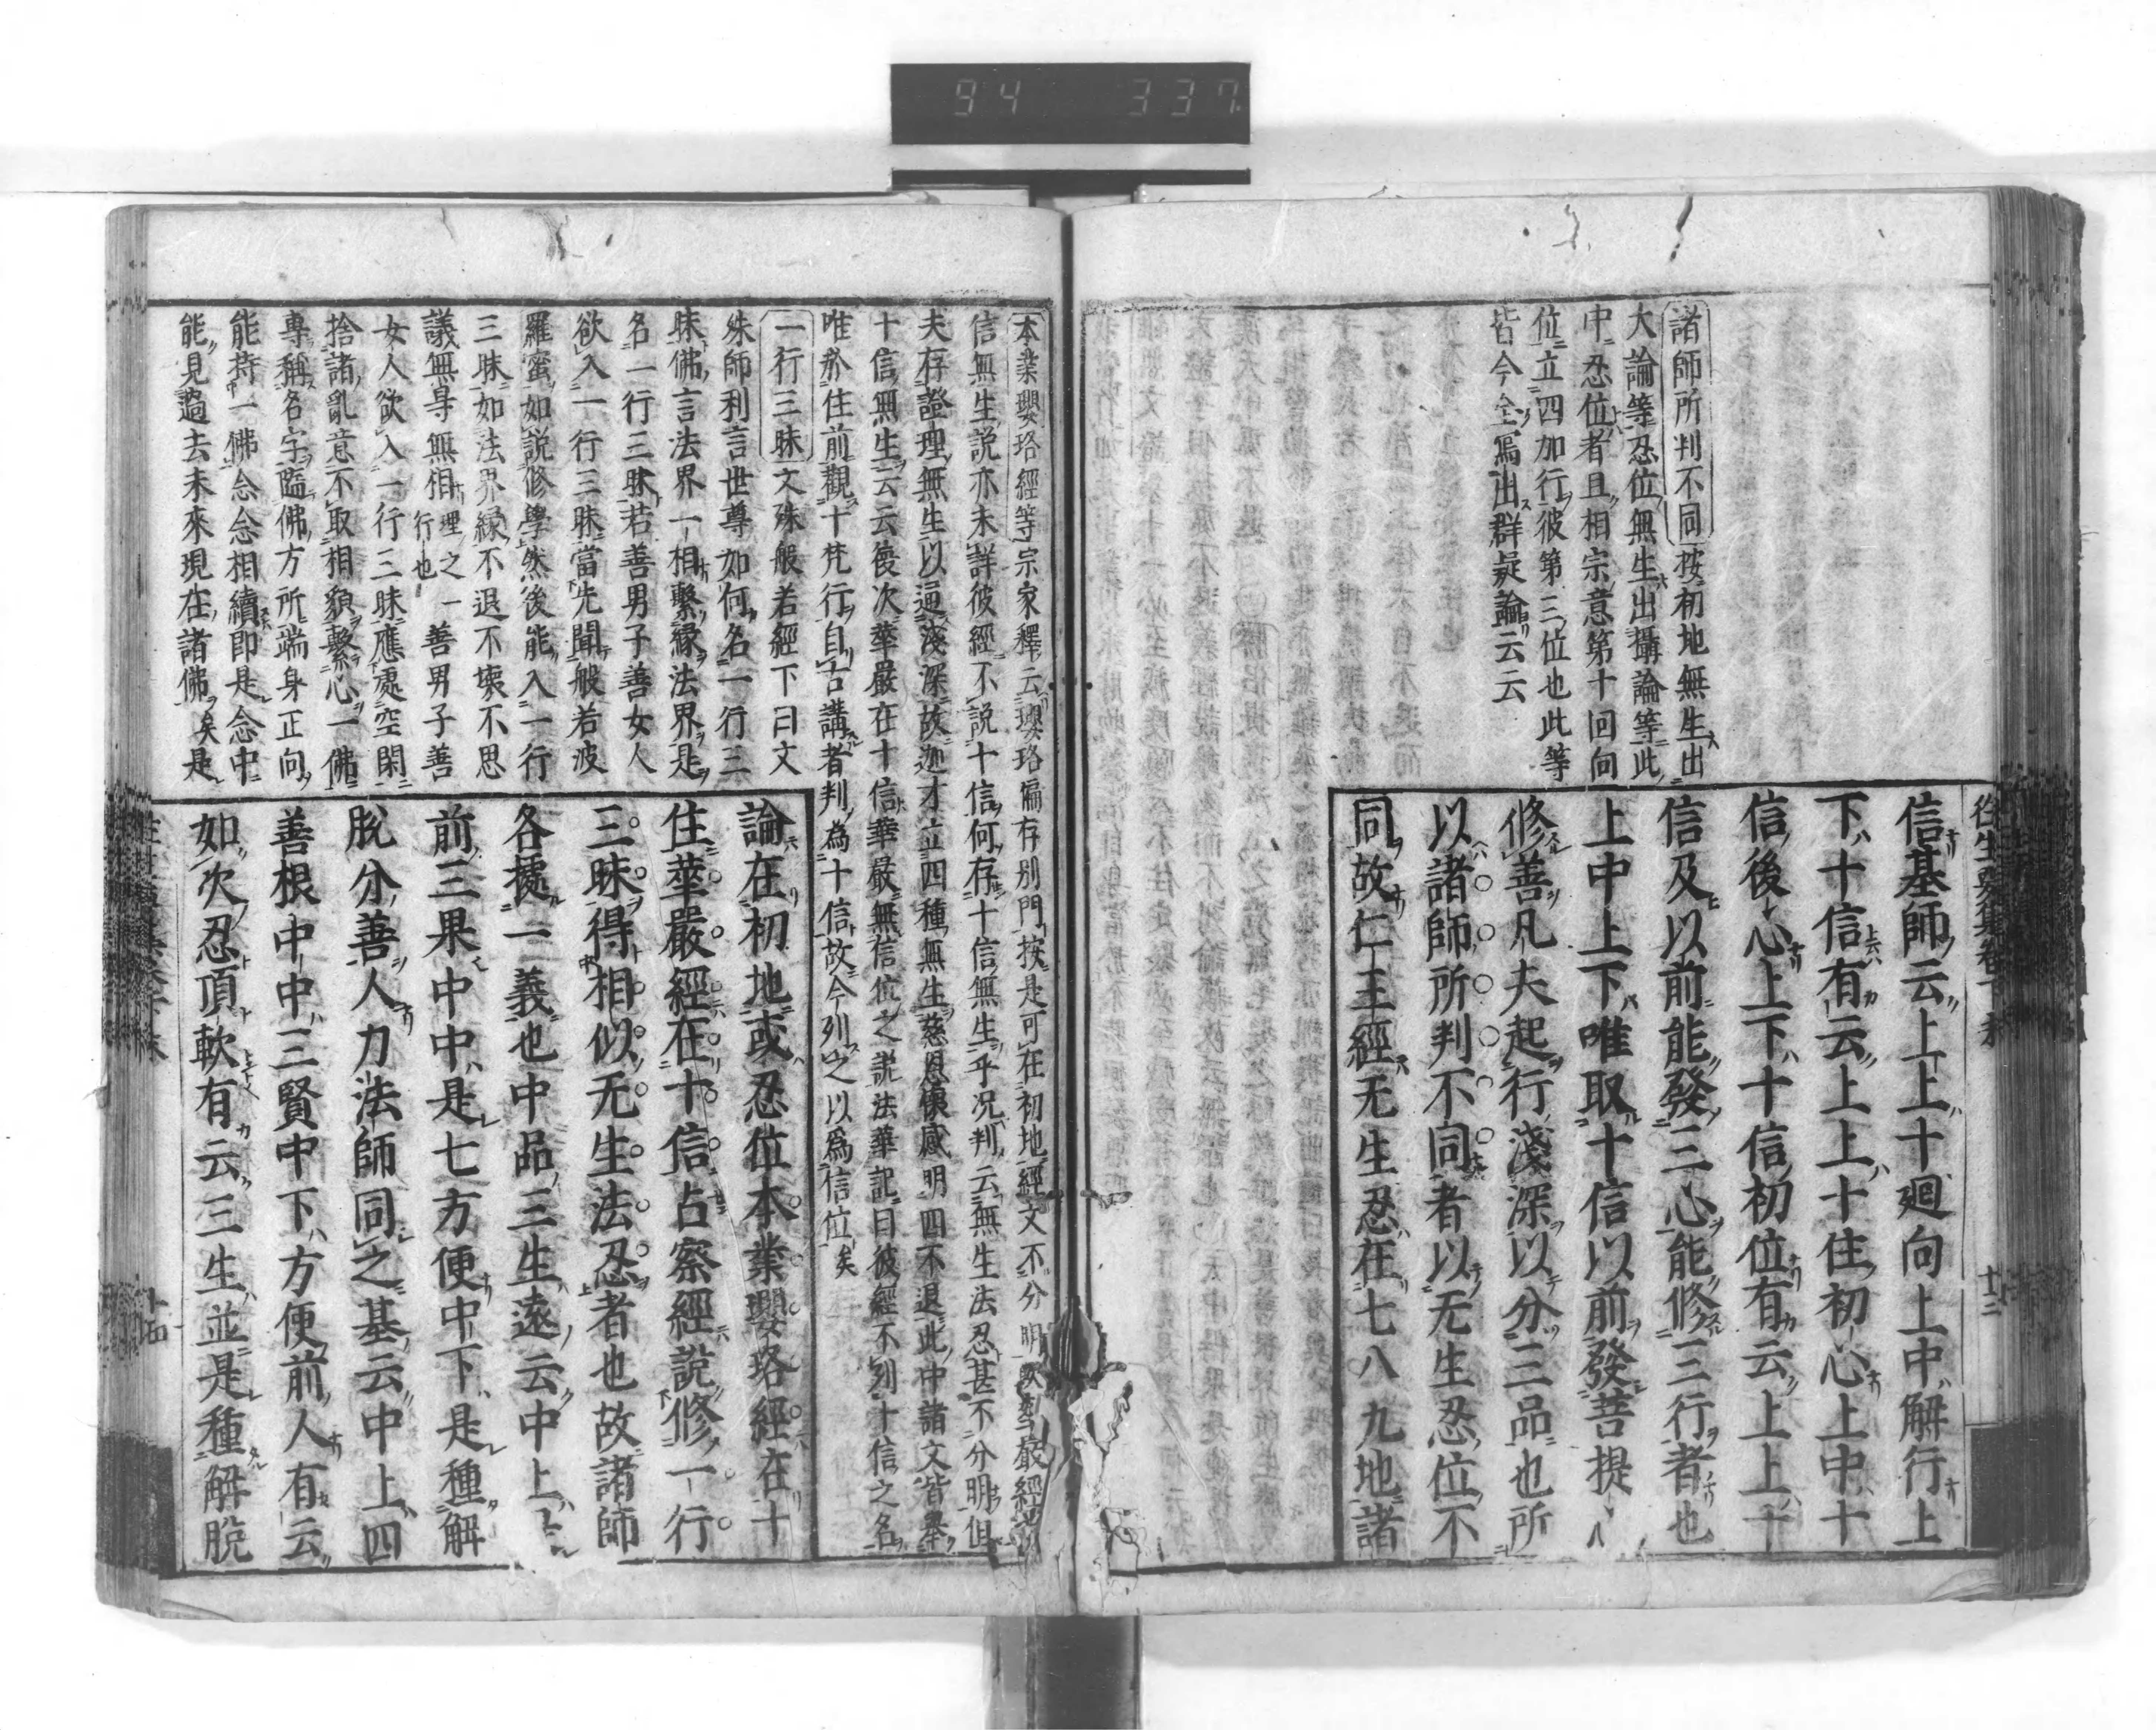 94 337
往生要集卷下末 十三
諸師所判不同按初地無生出
大論等忍位無生出攝論等此
中忍位者且相宗意第十回向
位立四加行彼第三位也此等
皆今全爲出群疑論云云
信基師云上上十廻向上中解行上
下十信有云上上十住初心上中十
信後心上下十信初位有云上上十
信及以前能發三心能修三行者也
上中上下唯取十信以前發菩提心
修善凡夫起行淺深以分三品也所
以諸師所判不同者以无生忍位不
同故仁王經无生忍在七八九地諸
本業瓔珞經等宗家釋云瓔珞偏存別門按是可在初地經文不分明
信無生説亦未詳彼經不説十信何存十信無生乎况判云無生法忍甚不分明但
夫存證理無生以逗淺深故迦才立四種無生慈恩懷感明四不退此中諸文皆舉
十信無生云云後次華嚴在十信華嚴無信位之説法華記曰彼經不列十信之名
唯於住前觀十梵行自古講者判爲十信故今列之以爲信位矣
一行三昧文殊般若經下曰文
殊師利言世尊如何名一行三
昧佛言法界一相繫縁法界是
名一行三昧若善男子善女人
欲入一行三昧當先聞般若波
羅蜜如説修學然後能入一行
三昧如法界縁不退不壞不思
議無㝵無相理之行也一善男子善
女人欲入一行三昧應處空閑
捨諸亂意不取相貌繫心一佛
專稱名字隨佛方所端身正向
能持一佛念念相續即是念中
能見過去未來現在諸佛矣是
論在初地或忍位本業瓔珞經在十
住華嚴經在十信占察經說修一行
三昧得相似无生法忍者也故諸師
各據一義也中品三生遠云中上是
前三果中中是七方便中下是種解
脫分善人力法師同之基云中上四
善根中中三賢中下方便前人有云
如次忍頂軟有云三生並是種解脫